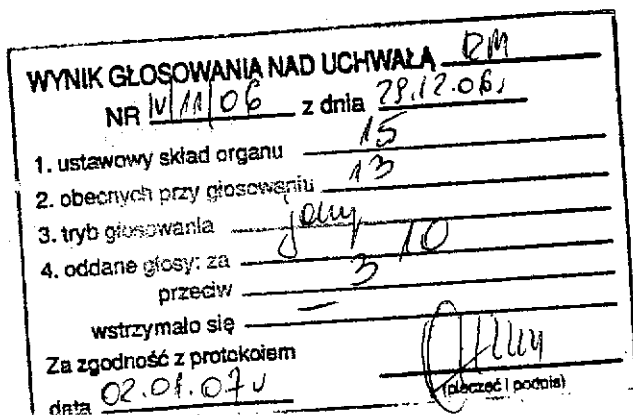 WYNIK GŁOSOWANIA NAD UCHWAŁĄ RM
NR IV/11/06 z dnia 29.12.06r
1. ustawowy skład organu 15
2. obecnych przy głosowaniu 13
3. tryb głosowania jawny
4. oddane głosy: za 10
przeciw 3
wstrzymało się –
Za zgodność z protokołem
data 02.01.07r
(pieczęć i podpis)